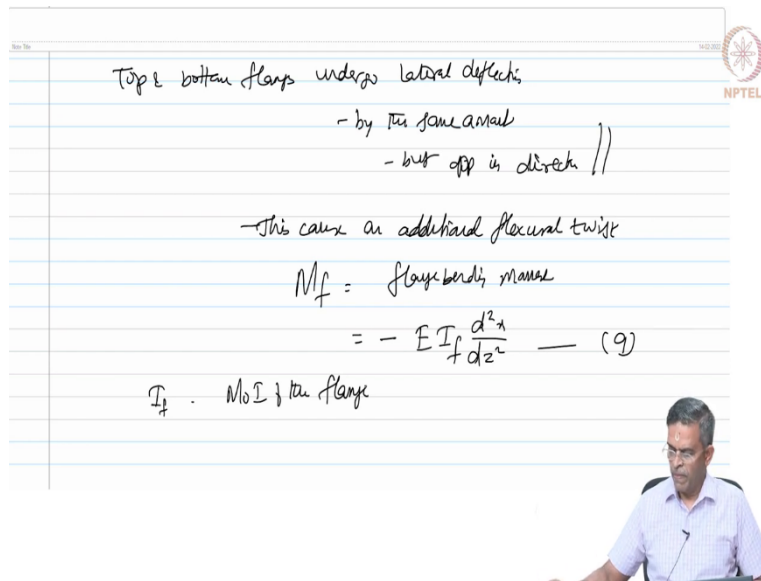 Note Title
14-02-2022
NPTEL
Top & bottom flanges undergo lateral deflection
- by the same amount
- but opp in direction
- This cause an additional flexural twist
Mf = flange bending moment
= - E If d²x/dz² — (9)
If . MoI of the flange